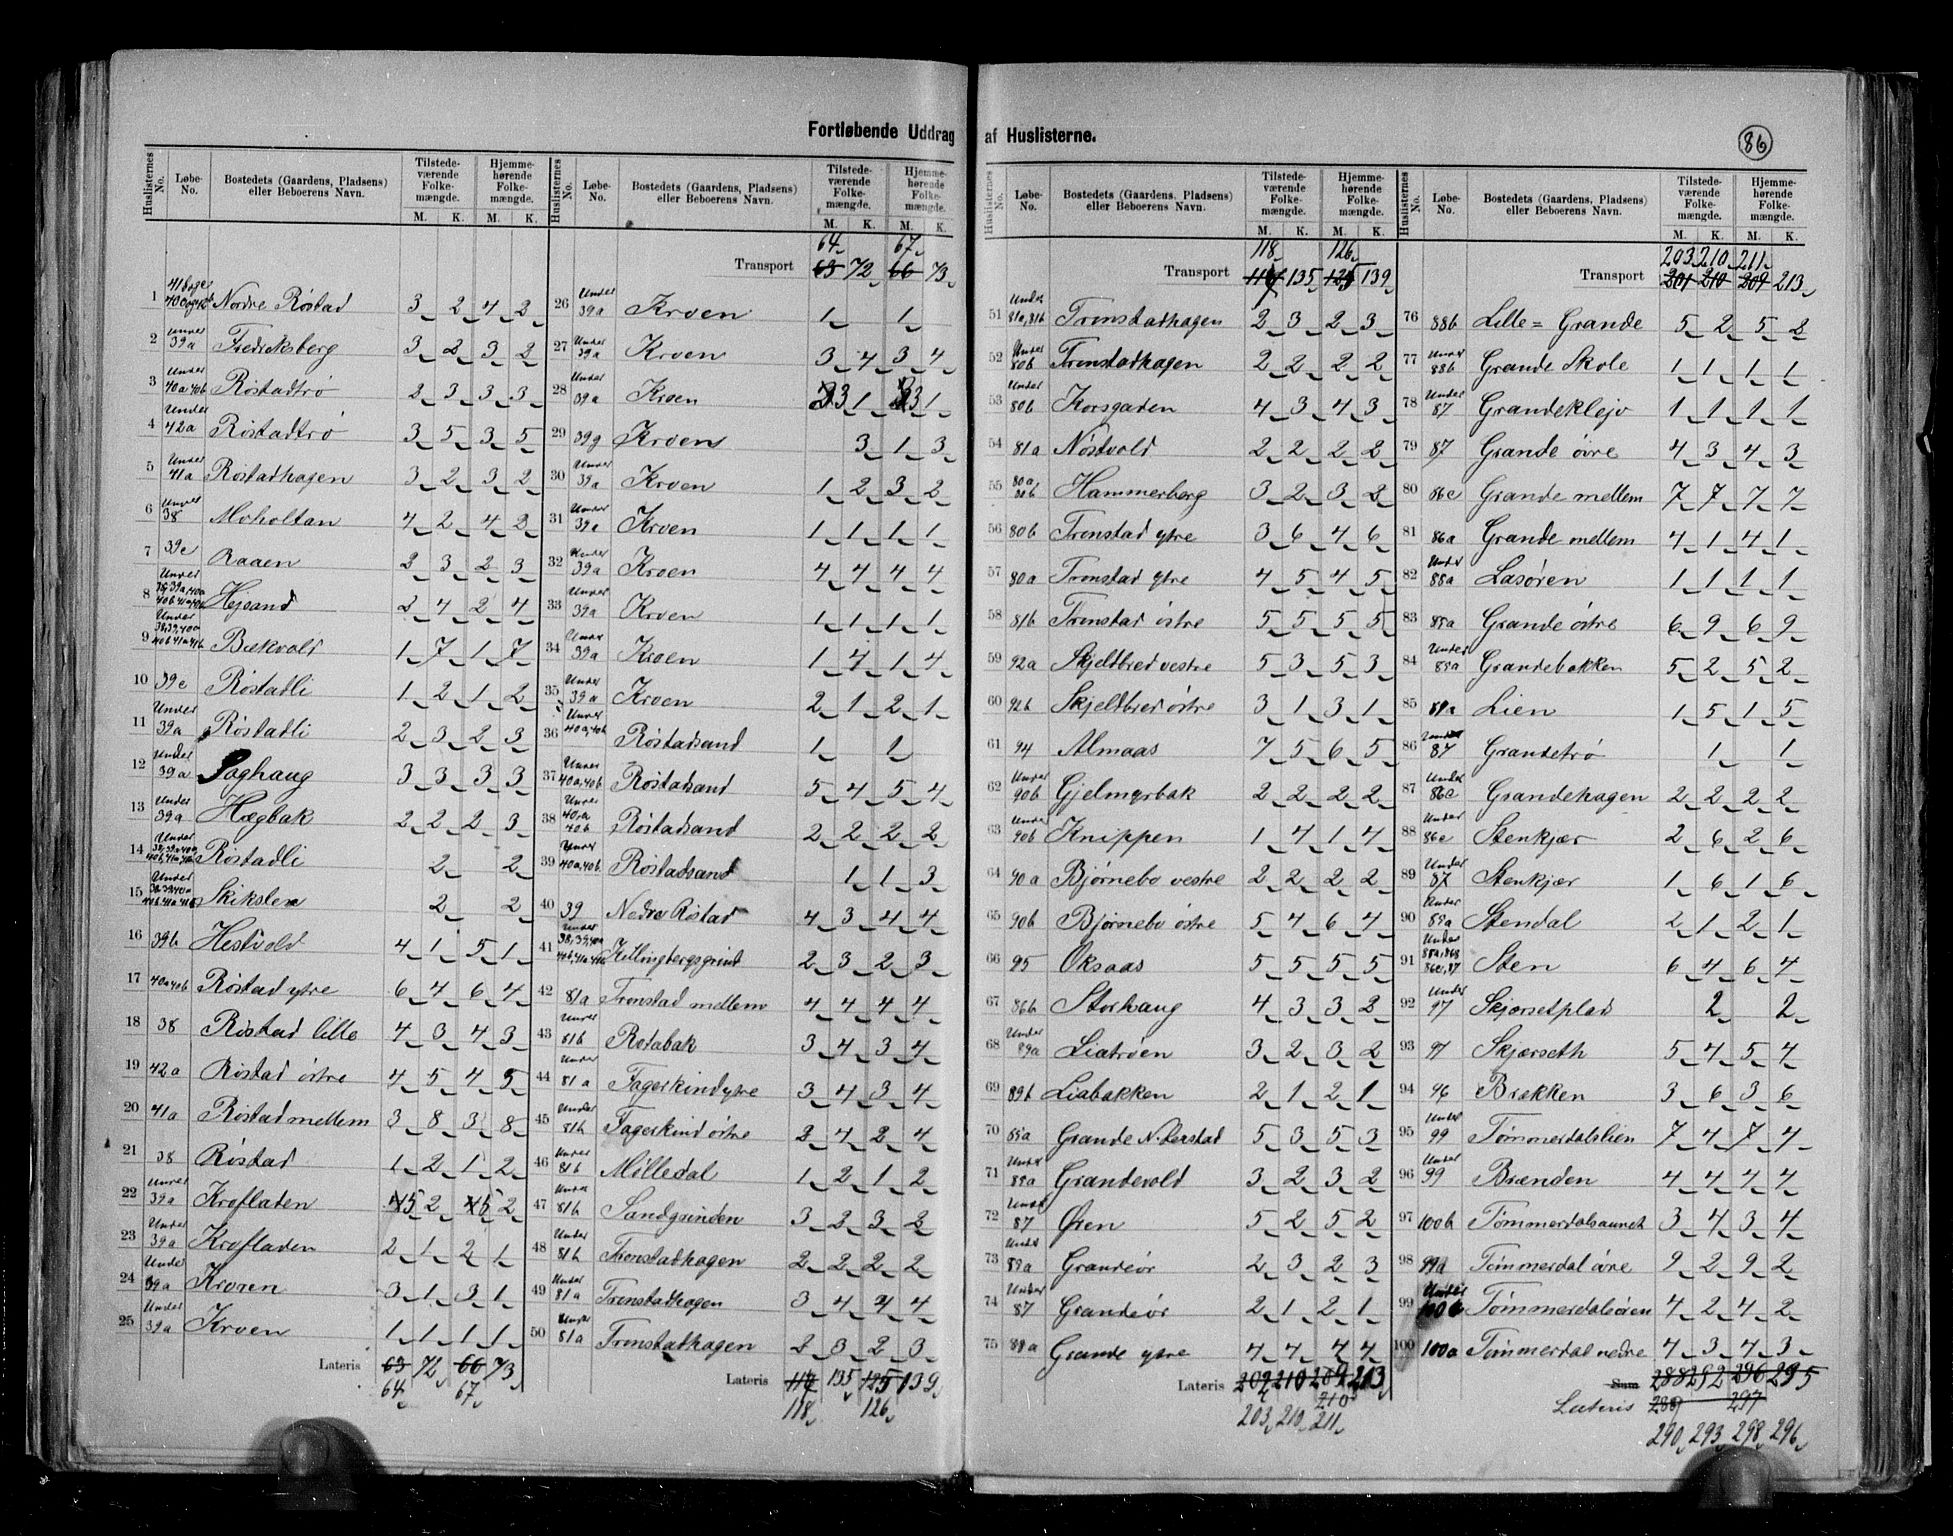 Fortløbende Uddrag af Huslisterne.
86
Huslisternes No. Løbe-No. Bostedets (Gaardens, Pladsens) eller Beboerens Navn. Tilstedeværende Folkemængde. M. K. Hjemmehørende Folkemængde. M. K.
1 Nordre Røstad 3 2 4 2
2 Under 39a Fredriksberg 3 2 3 2
3 Under 40a 40b Røstadtrø 2 3 3 3
4 Under 42a Røstadtrø 3 5 3 5
5 Under 41a Røstadhagen 3 2 3 2
6 Under 38 Moholtan 4 2 4 2
7 39e Raaen 2 3 2 3
8 Under Hejsand 2 4 2 4
9 Under Bækvold 1 7 1 7
10 39e Røstadli 1 2 1 2
11 Under 39a Røstadli 2 3 2 3
12 Under 39a Saghaug 3 3 3 3
13 Under 39a Hægbak 2 2 2 3
14 Under Røstadli 2 2
15 Under Skikslen 2 2
16 39b Hestvold 4 1 5 1
17 40a 40b Røstad ytre 6 4 6 4
18 38 Røstad lille 4 3 4 3
19 42a Røstad østre 4 5 4 5
20 41a Røstad mellem 3 8 3 8
21 38 Røstad 1 2 1 2
22 Under 39a Krofladen 5 2 5 2
23 Under 39a Krofladen 2 1 2 1
24 Under 39a Kroen 3 1 3 1
25 Under 39a Kroen 1 1 1 1
Lateris 63 72 66 73
64 67
Huslisternes No. Løbe-No. Bostedets (Gaardens, Pladsens) eller Beboerens Navn. Tilstedeværende Folkemængde. M. K. Hjemmehørende Folkemængde. M. K.
64 67
Transport 63 72 66 73
26 Under 39a Kroen 1 1
27 Under 39a Kroen 3 4 3 4
28 Under 39a Kroen 3 1 3 1
29 39g Kroen 3 1 3
30 Under 39a Kroen 1 2 3 2
31 Under 39e Kroen 1 1 1 1
32 Under 39a Kroen 4 4 4 4
33 Under 39a Kroen 1 1 1 1
34 Under 39a Kroen 1 4 1 4
35 Under 39a Kroen 2 1 2 1
36 Under 40a, 40b Røstadsand 1 1
37 Under 40a, 40b Røstadsand 5 4 5 4
38 Under 40a 40b Røstadsand 2 2 2 2
39 Under 40a, 40b Røstadsand 1 1 3
40 39 Nedre Røstad 4 3 4 4
41 Under Killingbergsgrind 2 3 2 3
42 81a Tronstad mellem 4 4 4 4
43 Under 81b Rotabak 3 4 3 4
44 Under 81a Fagerkind ytre 3 4 3 4
45 Under 81b Fagerkind østre 2 4 2 4
46 Under 81b Mølledal 1 2 1 2
47 Under 81b Sandgrinden 3 2 3 2
48 Under 81b Tronstadhagen 2 2 2 2
49 Under 81a Tronstadhagen 3 4 4 4
50 Under 81a Tronstadhagen 2 3 2 3
Lateris 117 135 125 139
118 126
Huslisternes No. Løbe-No. Bostedets (Gaardens, Pladsens) eller Beboerens Navn. Tilstedeværende Folkemængde. M. K. Hjemmehørende Folkemængde. M. K.
118 126
Transport 117 135 125 139
51 Under 81a, 81b Tronstadhagen 2 3 2 3
52 Under 80b Tronstadhagen 2 2 2 2
53 Under 80b Korsgaden 4 3 4 3
54 81a Nøstvold 2 2 2 2
55 Hammerberg 3 2 3 2
56 80b Tronstad ytre 3 6 4 6
57 80a Tronstad ytre 4 5 4 5
58 81b Tronstad østre 5 5 5 5
59 92a Skjeltbred vestre 5 3 5 3
60 92b Skjeltbred østre 3 1 3 1
61 94 Almaas 7 5 6 5
62 Under 90b Gjelmyrbak 2 2 2 2
63 Under 90b Knippen 1 4 1 4
64 90a Bjørnebo vestre 2 2 2 2
65 90b Bjørnebo østre 5 4 6 4
66 95 Oksaas 5 5 5 5
67 86b Storhaug 4 3 3 2
68 Under 89a Liatrøen 3 2 3 2
69 89b Liabakken 2 1 2 1
70 85a Grande N. Derstad 5 3 5 3
71 Under 85a Grandevold 3 2 3 2
72 Under 87 Øren 5 2 5 2
73 Under 89a Grandeør 2 3 2 3
74 Under 87 Grandeør 2 1 2 1
75 88a Grande ytre 4 4 4 4
Lateris 202 210 209 213
210
203 210 211
Huslisternes No. Løbe-No. Bostedets (Gaardens, Pladsens) eller Beboerens Navn. Tilstedeværende Folkemængde. M. K. Hjemmehørende Folkemængde. M. K.
203 210 211
Transport 201 210 209 213
76 88b Lille= Grande 5 2 5 2
77 Under 88b Grande Skole 1 1 1 1
78 Under 87 Grandeklejv 1 1 1 1
79 87 Grande øvre 4 3 4 3
80 86c Grande mellem 7 7 7 7
81 86a Grande mellem 4 1 4 1
82 Under 88a Lasøren 1 1 1 1
83 85a Grande østre 6 9 6 9
84 Under 85a Grandebakken 5 2 5 2
85 89a Lien 1 5 1 5
86 Under 87 Grandetrø 1 1
87 Under 86c Grandehagen 2 2 2 2
88 Under 86c Stenkjær 2 6 2 6
89 Under 87 Stenkjær 1 6 1 6
90 Under 85a Stendal 2 1 2 1
91 Under Sten 6 4 6 4
92 Under 97 Skjærsetplad 2 2
93 97 Skjærseth 5 4 5 4
94 96 Brækken 3 6 3 6
95 Under 99 Tømmerdalslien 7 4 7 4
96 Under 99 Brænden 4 4 4 4
97 100b Tømmerdalsaunet 3 4 3 4
98 99a Tømmerdal øvre 9 2 9 2
99 Under 100b Tømmerdalsøren 4 2 4 2
100 100a Tømmerdal nedre 4 3 4 3
Sum 288 292 296 295
Lateris 289 297
290 293 298 296